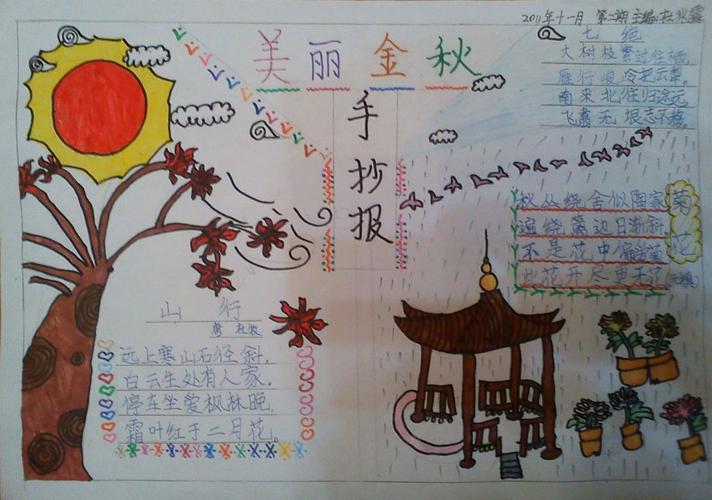 2011年十一月 第二期 主编:杜
美丽金秋
手抄报
七绝
大树枝繁过住栖,
雁行
南来北往归途远,
飞翥无垠志不移
秋丛绕舍似陶家
遍绕篱边日渐斜
不是花中偏爱菊
此花开尽更无花(元稹)
菊花
山行
杜牧
远上寒山石径斜,
白云生处有人家。
停车坐爱枫林晚,
霜叶红于二月花。